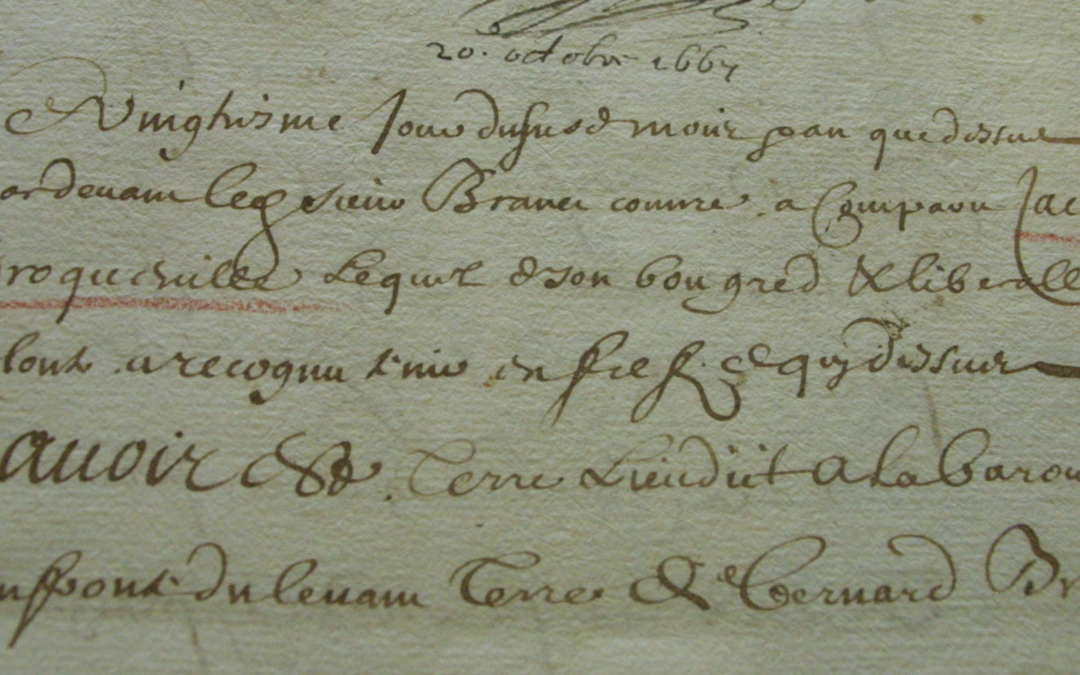 20e octobre 1667
Vingtiesme Jour dususd moix & an que dessus
ardevant led sieur Branet comre a Compareu Jac
roqueville Lequel de son bon gred & liberalle
lonte a recognu tenir en fief ce quy dessus
avoir Terre Lieudict A la baron
onfront du levant Terre de bernard Br